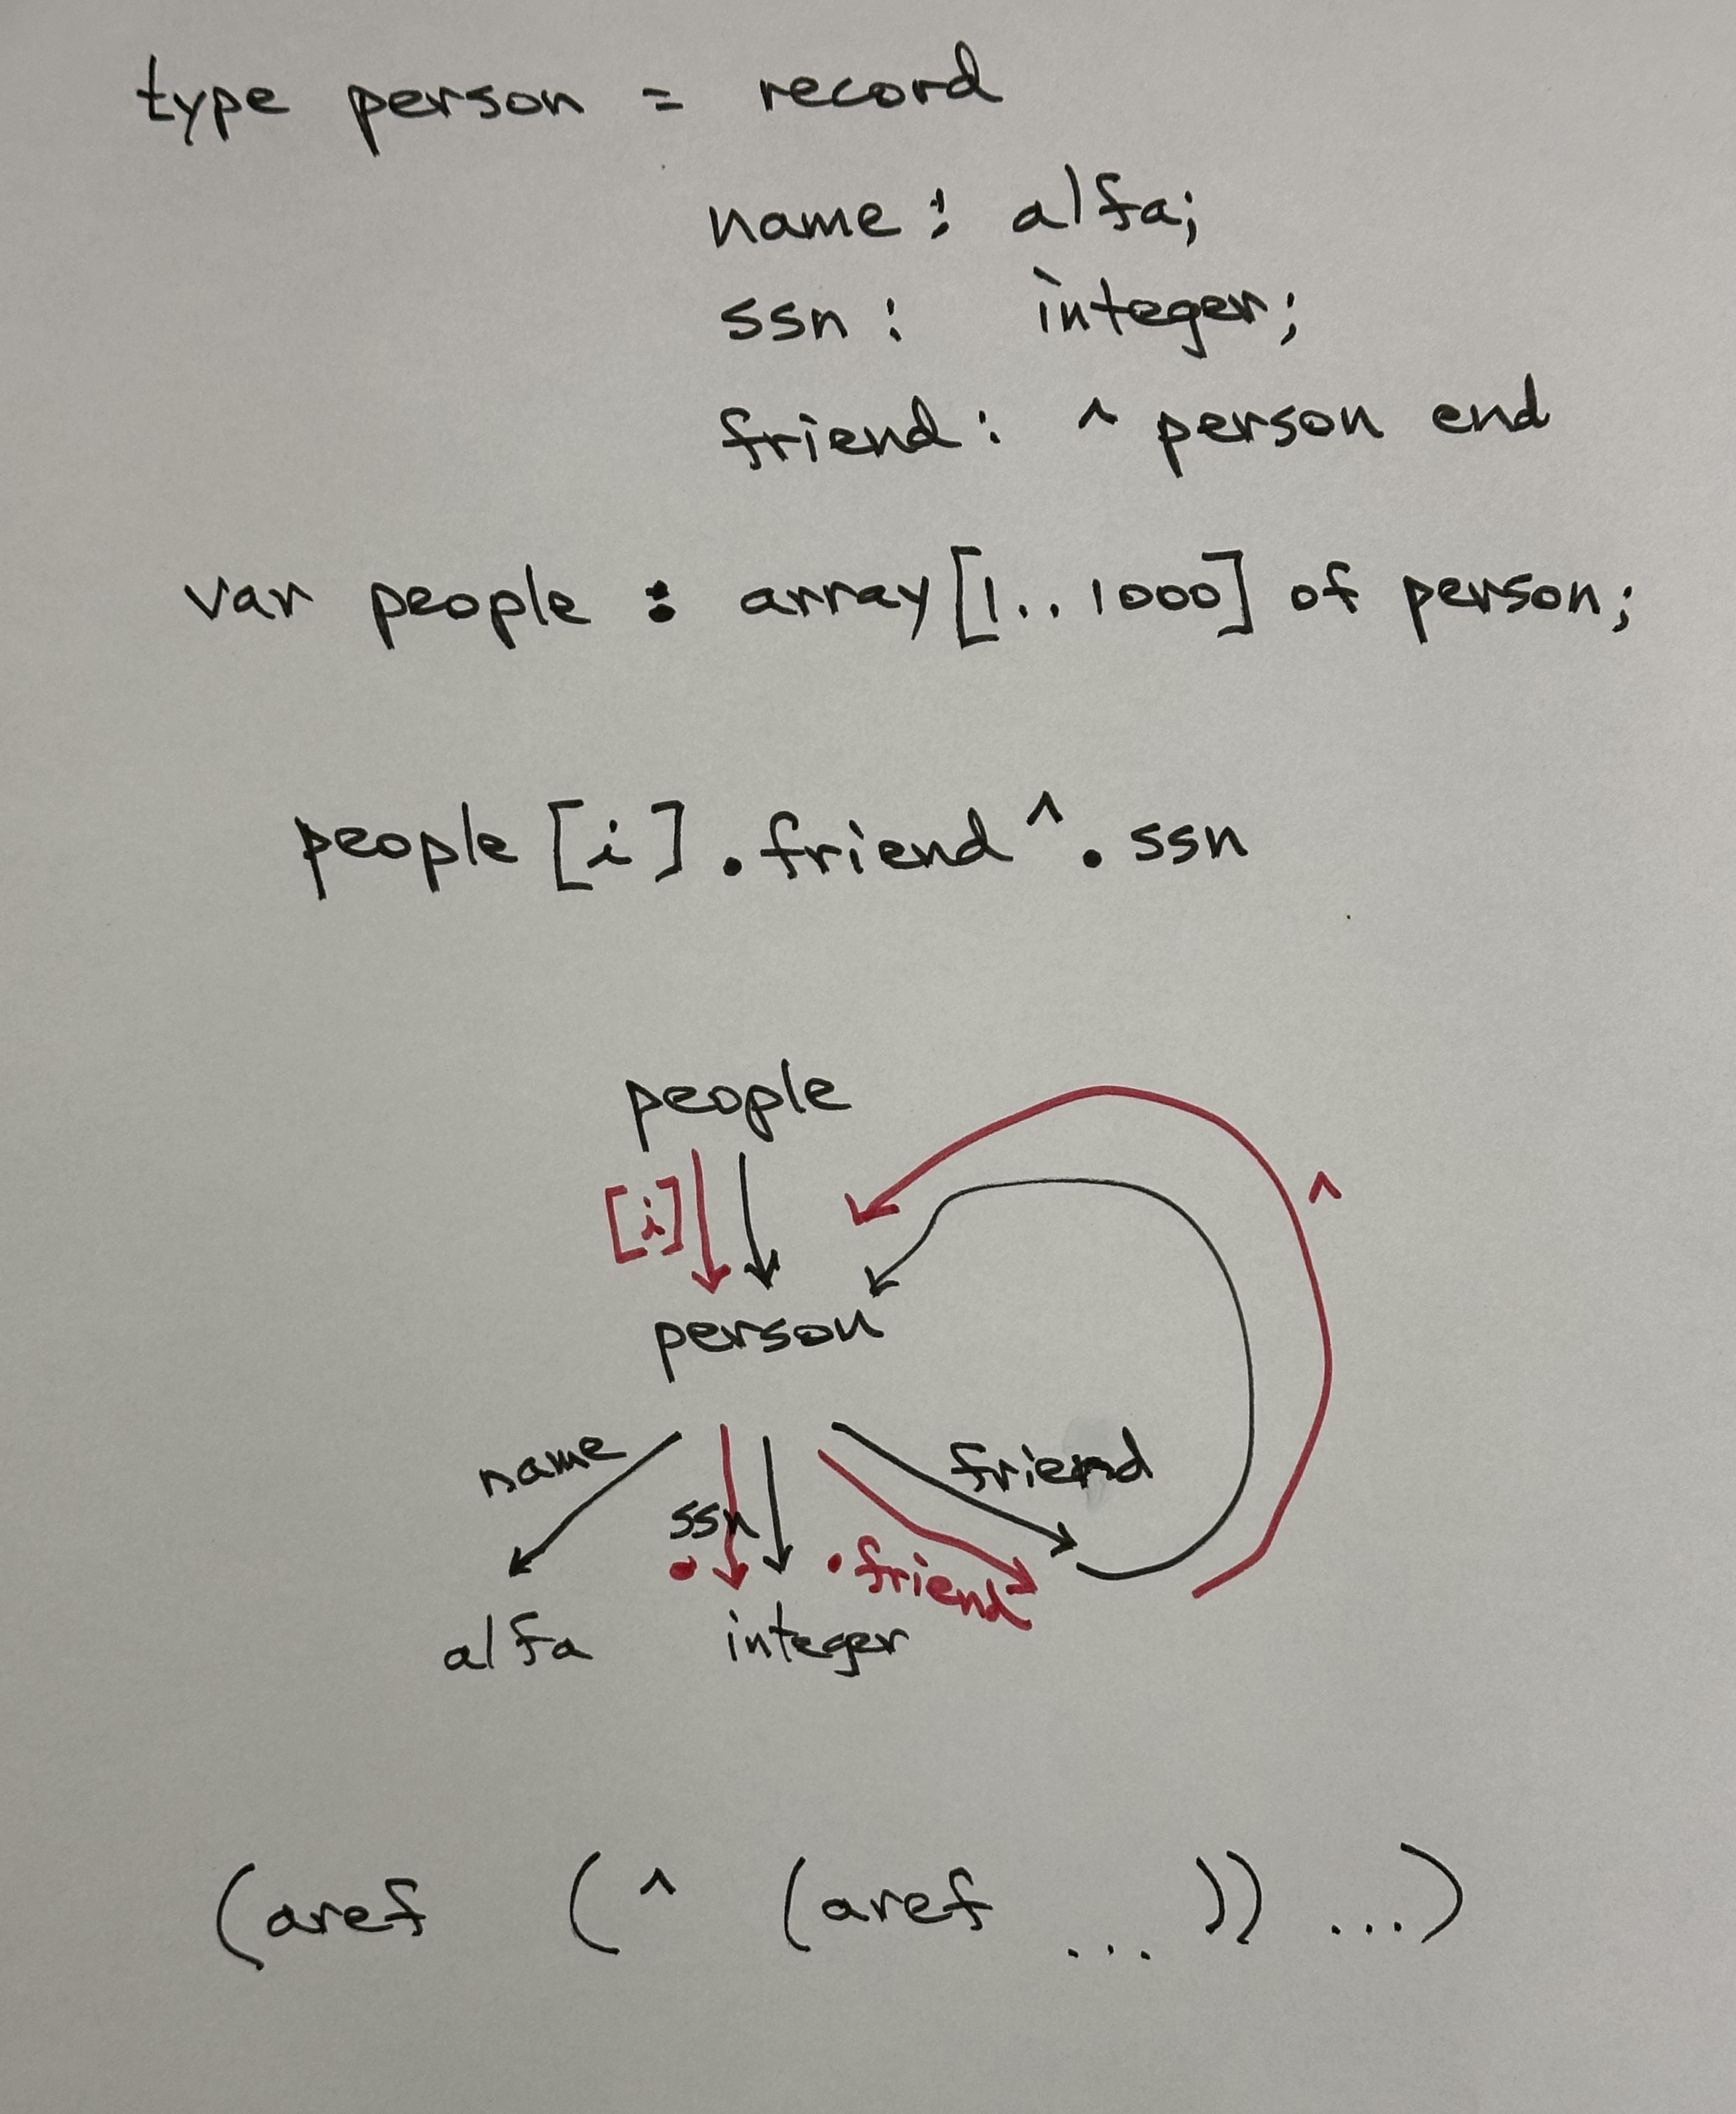 type person = record
name : alfa;
ssn : integer;
friend : ^ person end
var people : array [1..1000] of person;
people [i] . friend ^ . ssn
people
[i]
^
person
name
friend
ssn
. . friend
alfa integer
(aref (^ (aref ... )) ...)